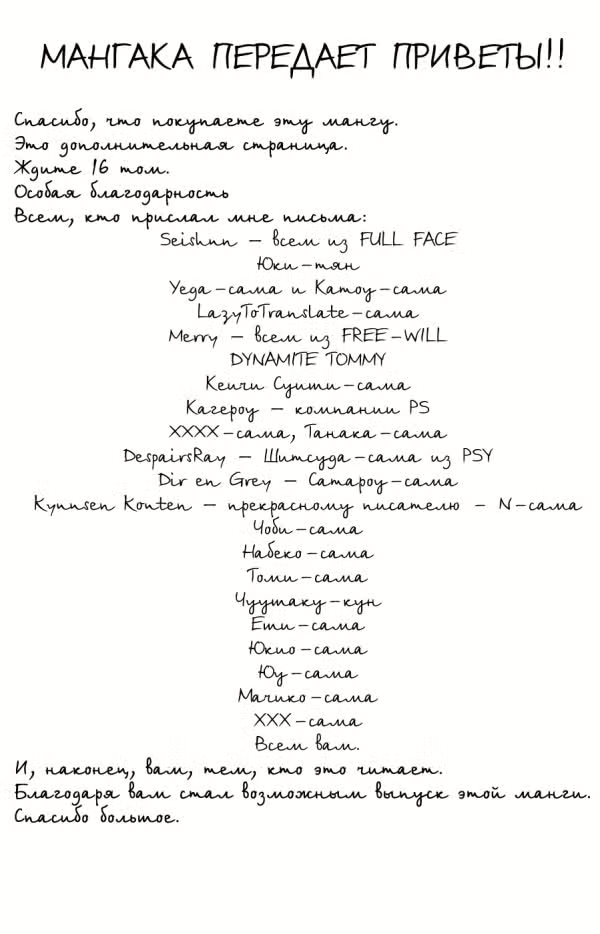 МАНГАКА ПЕРЕДАЕТ ПРИВЕТЫ!!
Спасибо, что покупаете эту мангу.
Это дополнительная страница.
Ждите 16 том.
Особая благодарность
Всем, кто прислал мне письма:
Seishun – всем из FULL FACE
Юки-тян
Уеда-сама и Камоу-сама
LazyToTranslate-сама
Merry – всем из FREE-WILL
DYNAMITE TOMMY
Кеичи Суити-сама
Кагероу – компании PS
XXXX-сама, Танака-сама
DespairsRay – Шитсуда-сама из PSY
Dir en Grey – Сатароу-сама
Kyuusen Konten – прекрасному писателю – N-сама
Чоби-сама
Набеко-сама
Томи-сама
Чуутаку-кун
Ети-сама
Юкио-сама
Юу-сама
Мачико-сама
XXX-сама
Всем вам.
И, наконец, вам, тем, кто это читает.
Благодаря вам стал возможным выпуск этой манги.
Спасибо большое.